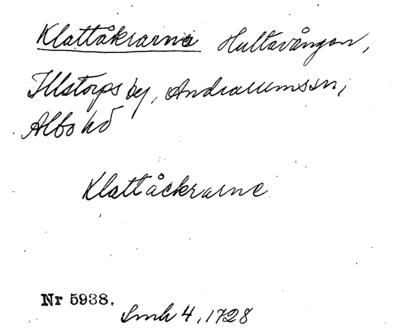 Klattåkrarne Hultavången,
Illstorps by, Andrarumssn,
Albo hd
Klattåckrarne
Nr 5938.
Smh 4, 1728